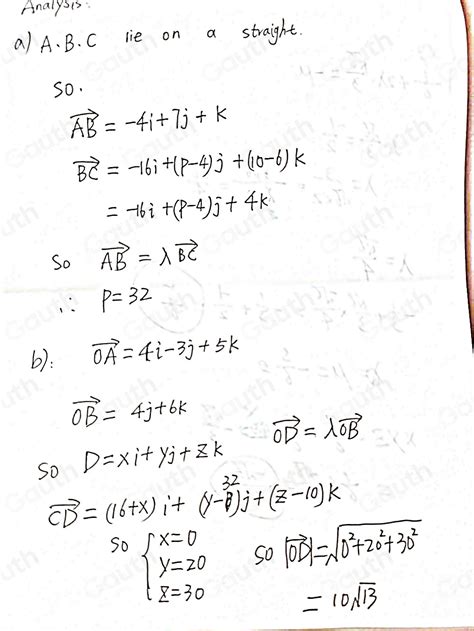 Analysis:
a) A.B.C lie on a straight.
so.
AB = -4i+7j+k
BC = -16i+(P-4)j+(10-6)k
= -16i+(P-4)j+4k
so AB = λBC
∴ P=32
b): OA = 4i-3j+5k
OB = 4j+6k
OD = λOB
so D=xi+yj+zk
32
CD = (16+x)i+(y-P)j+(z-10)k
so { x=0
y=20
z=30
so |OD|=√0²+20²+30²
= 10√13